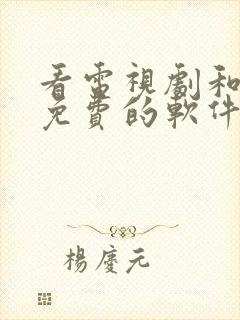 看電視劇和
免費的軟件
楊慶元